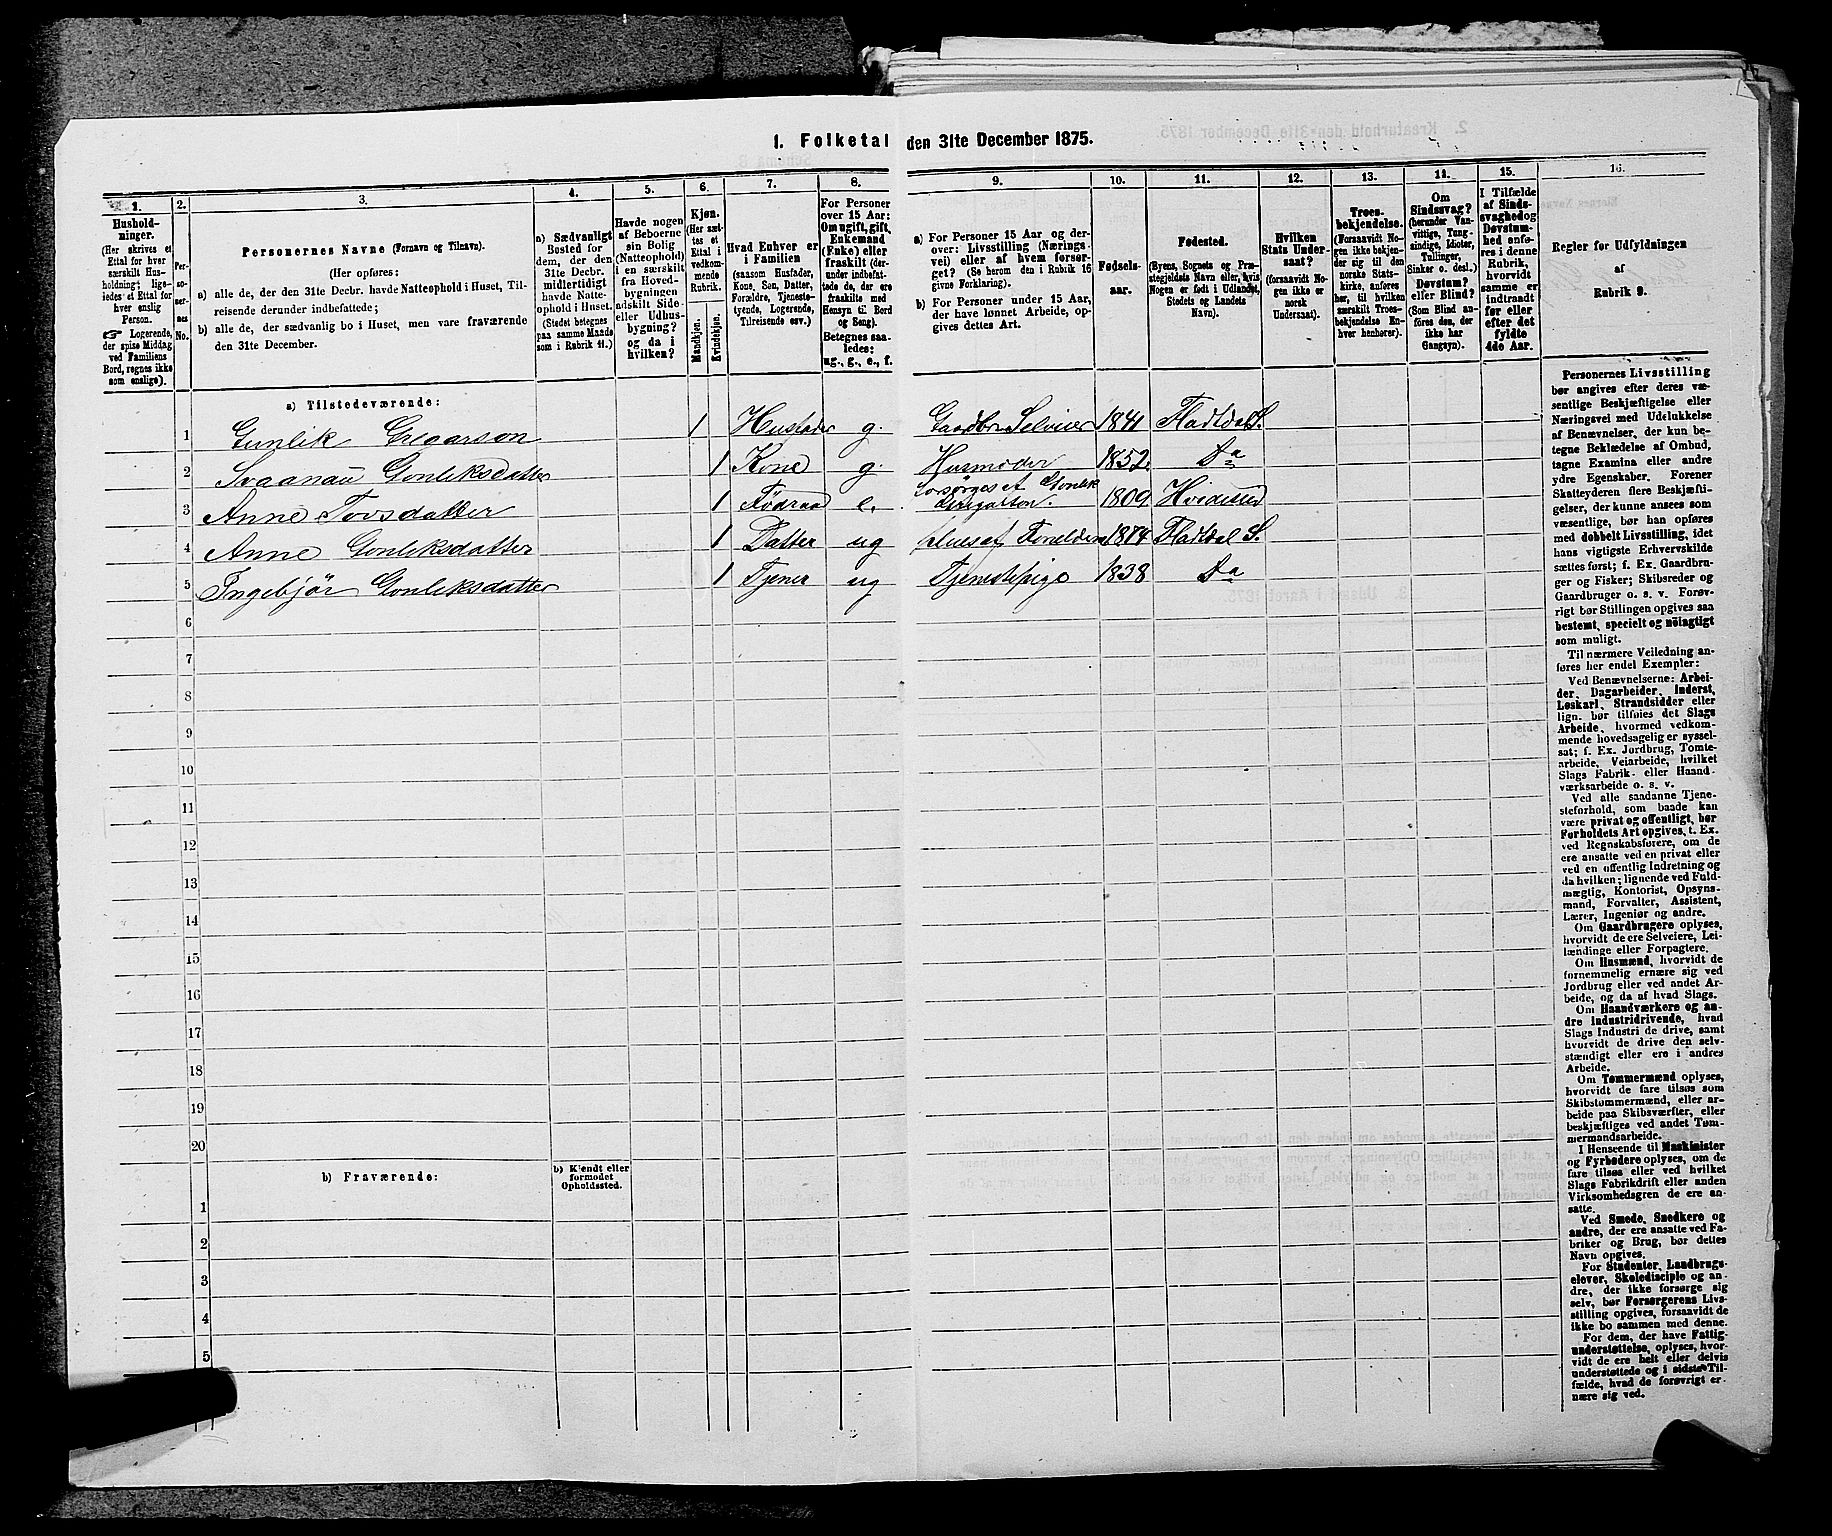 1. Folketal den 31te December 1875.
1.
Hushold-
ninger.
(Her skrives et
Ettal for hver
særskilt Hus-
holdning; lige-
ledes et Ettal for
hver enslig
Person.
☞ Logerende,
der spise Middag
ved Familiens
Bord, regnes ikke
som enslige).
2.
Per-
so-
ner-
nes
No.
3.
Personernes Navne (Fornavn og Tilnavn).
(Her opføres:
a) alle de, der den 31te Decbr. havde Natteophold i Huset, Til-
reisende derunder indbefattede;
b) alle de, der sædvanlig bo i Huset, men vare fraværende
den 31te December.
4.
a) Sædvanligt
Bosted for
dem, der den
31te Decbr.
midlertidigt
havde Natte-
ophold i Huset.
(Stedet betegnes
paa samme Maade
som i Rubrik 11.)
5.
Havde nogen
af Beboerne
sin Bolig
(Natteophold)
i en særskilt
fra Hoved-
bygningen
adskilt Side-
eller Udhus-
bygning?
og da i
hvilken?
6.
Kjøn.
(Her sæt-
tes et
Ettal i
vedkom-
mende
Rubrik.
Mandkjøn.
Kvindekjøn.
7.
Hvad Enhver er
i Familien
(saasom Husfader,
Kone, Søn, Datter,
Forældre, Tjeneste-
tyende, Logerende,
Tilreisende osv.)
8.
For Personer
over 15 Aar:
Om ugift, gift,
Enkemand
(Enke) eller
fraskilt (der-
under indbefat-
tede de, der ere
fraskilte med
Hensyn til Bord
og Seng).
Betegnes saa-
ledes:
ug., g., e., f.
9.
a) For Personer 15 Aar og der-
over: Livsstilling (Nærings-
vei) eller af hvem forsør-
get? (Se herom den i Rubrik 16
givne Forklaring).
b) For Personer under 15 Aar,
der have lønnet Arbeide, op-
gives dettes Art.
10.
Fødsels-
aar.
11.
Fødested.
(Byens, Sognets og Præ-
stegjeldets Navn eller, hvis
Nogen er født i Udlandet,
Stedets og Landets
Navn).
12.
Hvilken
Stats Under-
saat?
(forsaavidt No-
gen ikke er
norsk
Undersaat).
13.
Troes-
bekjendelse.
(Forsaavidt No-
gen ikke bekjen-
der sig til den
norske Stats-
kirke, anføres
her, til hvilken
særskilt Troes-
bekjendelse En-
hver henhører).
14.
Om
Sindssvag?
(herunder Van-
vittige, Tung-
sindige, Idioter,
Tullinger,
Sinker o. desl.)
Døvstum?
eller Blind?
(Som Blind an-
føres den, der
ikke har
Gangsyn).
15.
I Tilfælde
af Sinds-
svaghed og
Døvstum-
hed anfø-
res i denne
Rubrik,
hvorvidt
samme er
indtraadt
før eller
efter det
fyldte
4de Aar.
16.
Regler for Udfyldningen
af
Rubrik 9.
a) Tilstedeværende:
1 Gunlik Gregarson 1 Husfader g. Gaardbr. Selveier 1841 Fladtdal S.
2 Svaanau Gonleksdatter 1 Kone g. Husmoder 1852 Da
3 Anne Tovsdatter 1 Fødraad e. forsørges af Gonlek 1809 Hvideseid
4 Anne Gonleksdatter 1 Datter ug Forældrene 1874 Fladtdal S.
5 Ingebjør Gonleksdatter 1 Tjener ug Tjenestepige 1838 Da
6
7
8
9
10
11
12
13
14
15
16
17
18
19
20
b) Fraværende:
b) Kjendt eller
formodet
Opholdssted.
1
2
3
4
5
Personernes Livsstilling
bør angives efter deres væ-
sentlige Beskjæftigelse eller
Næringsvei med Udelukkelse
af Benævnelser, der kun be-
tegne Beklædelse af Ombud,
tagne Examina eller andre
ydre Egenskaber. Forener
Skatteyderen flere Beskjæfti-
gelser, der kunne ansees som
væsentlige, bør han opføres
med dobbelt Livsstilling, idet
hans vigtigste Erhvervskilde
sættes først; f. Ex. Gaardbru-
ger og Fisker; Skibsreder og
Gaardbruger o. s. v. Forøv-
rigt bør Stillingen opgives saa
bestemt, specielt og nöiagtigt
som muligt.
Til nærmere Veiledning an-
føres her endel Exempler:
Ved Benævnelserne: Arbei-
der, Dagarbeider, Inderst,
Løskarl, Strandsidder eller
lign. bør tilføies det Slags
Arbeide, hvormed vedkom-
mende hovedsagelig er syssel-
sat; f. Ex. Jordbrug, Tomte-
arbeide, Veiarbeide, hvilket
Slags Fabrik- eller Haand-
værksarbeide o. s. v.
Ved alle saadanne Tjene-
steforhold, som baade kan
være privat og offentligt, bør
Forholdets Art opgives, t. Ex.
ved Regnskabsførere, om de
ere ansatte ved en privat eller
ved en offentlig Indretning og
da hvilken; lignende ved Fuld-
mægtig, Kontorist, Opsyns-
mand, Forvalter, Assistent,
Lærer, Ingeniør og andre.
Om Gaardbrugere oplyses,
hvorvidt de ere Selveiere, Lei-
lændinge eller Forpagtere.
Om Husmænd, hvorvidt de
fornemmelig ernære sig ved
Jordbrug eller ved andet Ar-
beide, og da af hvad Slags.
Om Haandværkere og an-
dre industridrivende, hvad
Slags Industri de drive, samt
hvorvidt de drive den selv-
stændigt eller ere i andres
Arbeide.
Om Tømmermænd oplyses,
hvorvidt de fare tilsøs som
Skibstømmermænd, eller ar-
beide paa Skibsværfter, eller
beskjæftiges ved andet Tøm-
mermandsarbeide.
I Henseende til Maskinister
og Fyrbødere oplyses, om de
fare tilsøs eller ved hvilket
Slags Fabrikdrift eller anden
Virksomhedsgren de ere an-
satte.
Ved Smede, Snedkere og
andre, der ere ansatte ved Fa-
briker og Brug, bør dettes
Navn opgives.
For Studenter, Landbrugs-
elever, Skoledisciple og an-
dre, der ikke forsørge sig
selv, bør Forsørgerens Livs-
stilling opgives, forsaavidt de
ikke bo sammen med denne.
For dem, der have Fattig-
understøttelse, oplyses, hvor-
vidt de ere helt eller delvis
understøttede og i sidste Til-
fælde, hvad de forøvrigt er-
nære sig ved.